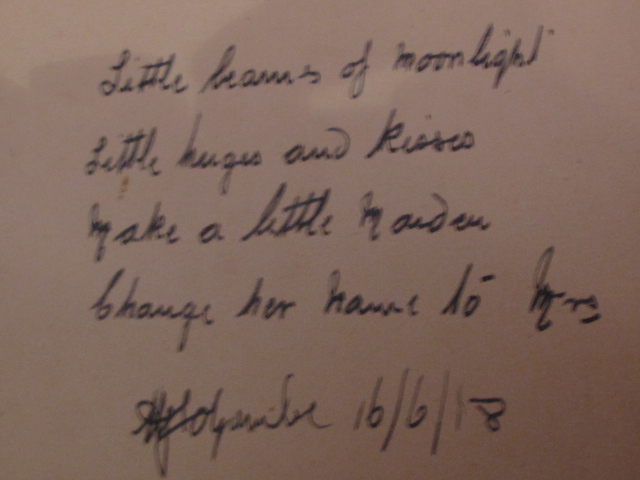 Little beams of moonlight
Little huges and kisses
Make a little Maiden
Change her name to Mrs
16/6/18